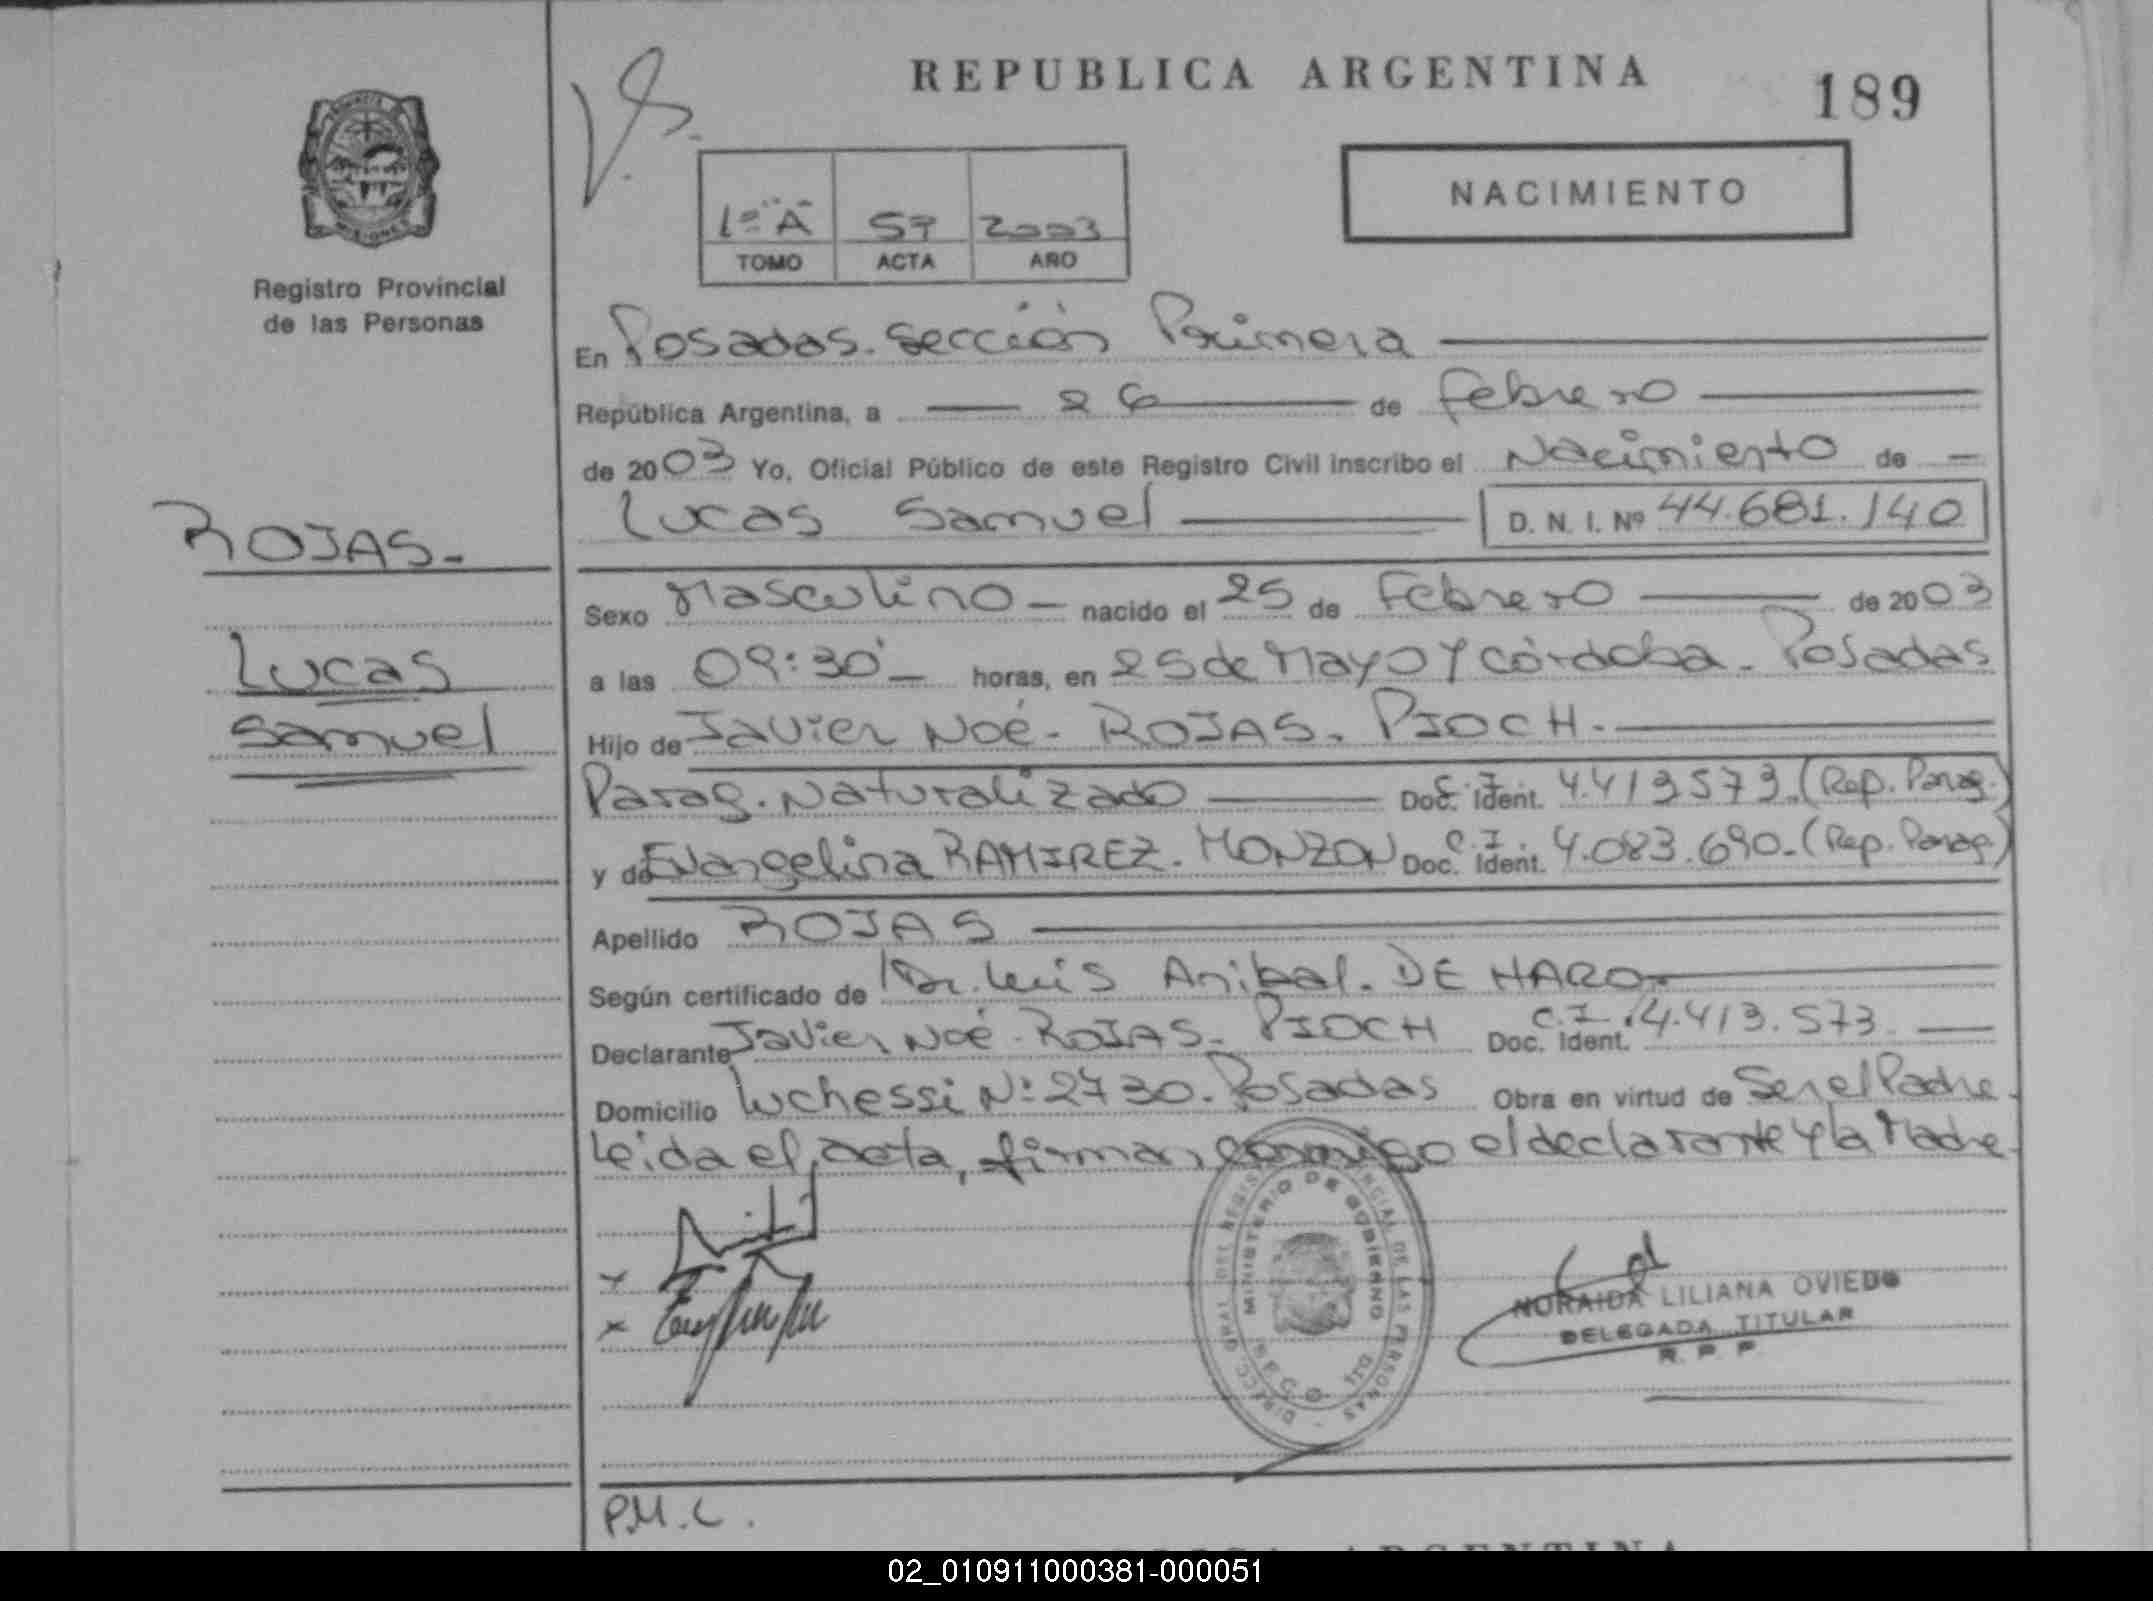 REPUBLICA ARGENTINA
189
NACIMIENTO
1º "A" 57 2003
TOMO ACTA AÑO
Registro Provincial
de las Personas
En Posadas. Sección Primera
República Argentina, a 26 de Febrero
de 2003 Yo, Oficial Público de este Registro Civil inscribo el Nacimiento de
Lucas Samuel D. N. I. Nº 44.681.140
ROJAS.
Lucas
Samuel
Sexo Masculino nacido el 25 de Febrero de 2003
a las 09:30 horas, en 25 de Mayo y Córdoba. Posadas
Hijo de Javier Noé. ROJAS. PIOCH.
Parag. Naturalizado Doc. Ident. C.I. 4.413573. (Rep. Parag.)
y de Evangelina RAMIREZ. MONZON Doc. Ident. C.I. 4.083.690. (Rep. Parag.)
Apellido ROJAS
Según certificado de Dr. Luis Anibal. DE HARO.
Declarante Javier Noé. ROJAS. PIOCH Doc. Ident. C.I. 4.413.573.
Domicilio Luchessi Nº 2730. Posadas Obra en virtud de Ser el Padre.
Leida el acta, firman conmigo el declarante y la Madre.
MINISTERIO DE GOBIERNO
NORAIDA LILIANA OVIEDO
DELEGADA TITULAR
R. P. P.
P.M.C.
02_010911000381-000051